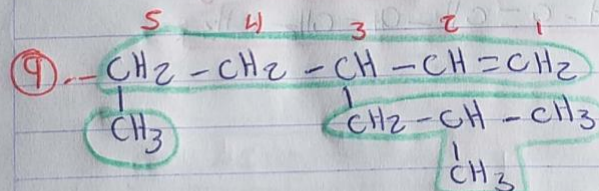 5 4 3 2 1
9.- CH2 - CH2 - CH - CH = CH2
CH3 CH2 - CH - CH3
CH3